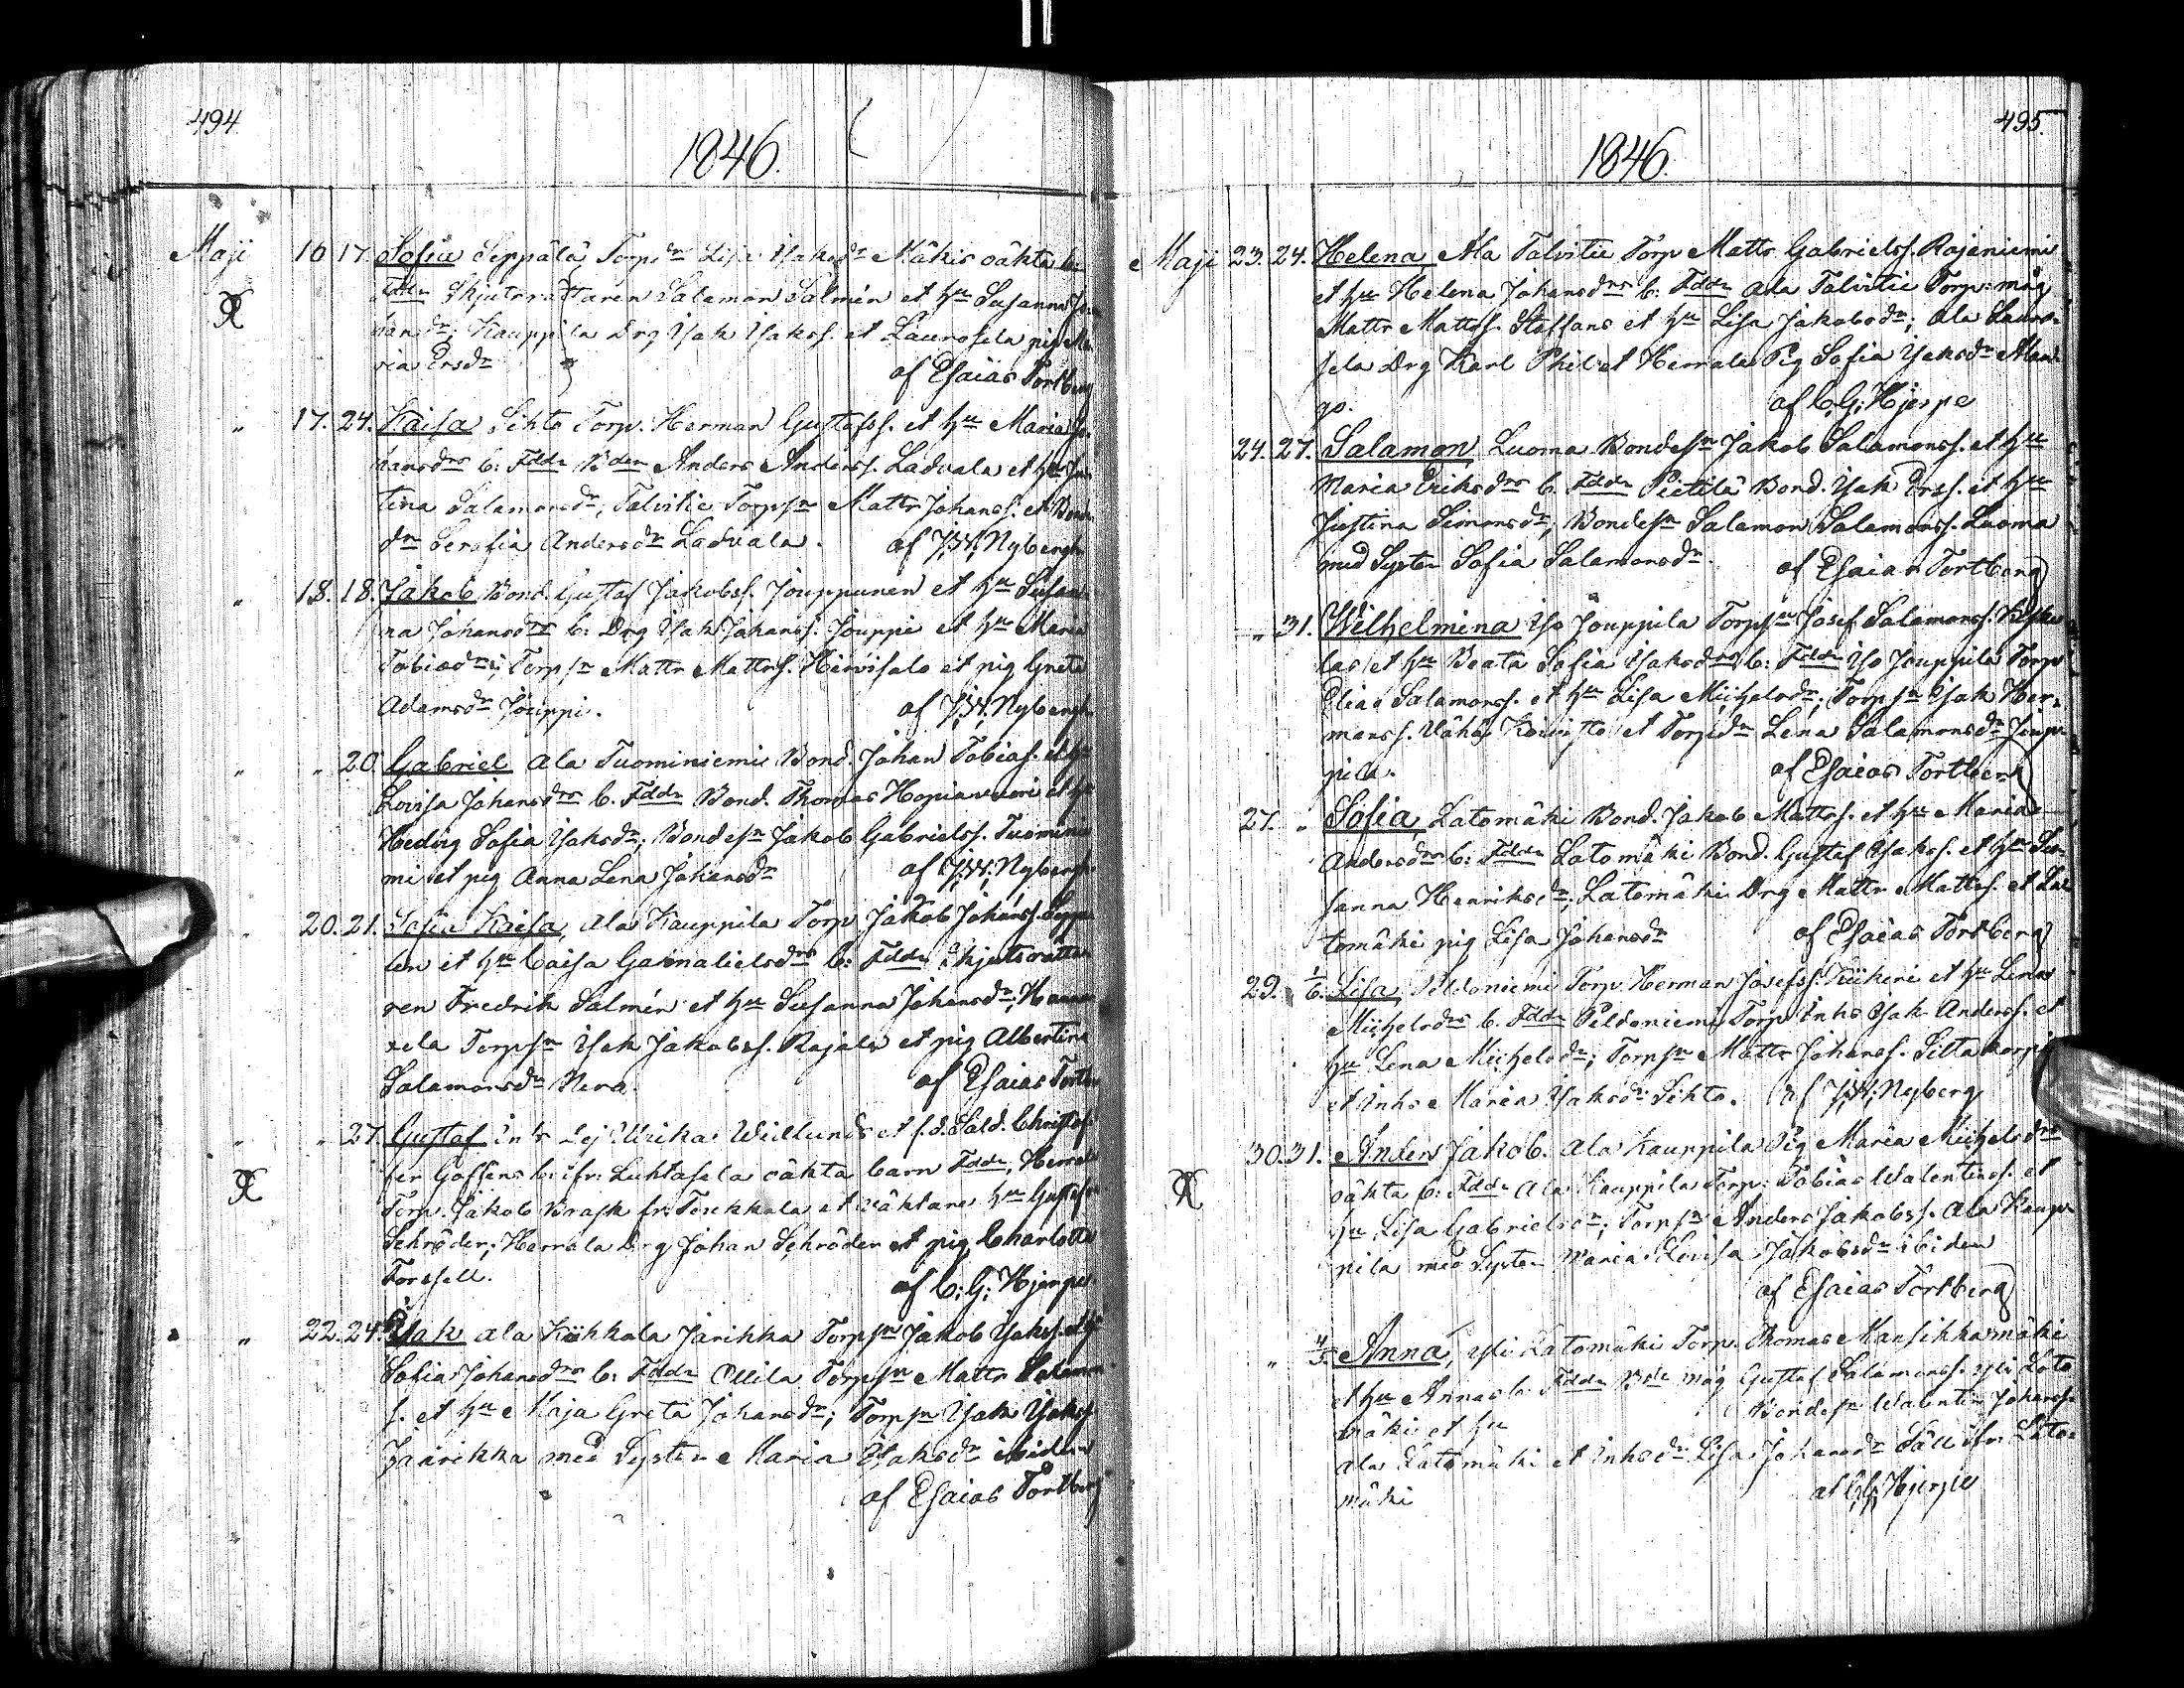 494
1846.
Maji 16 17. Sofia Seppälä Torpdr Lisa Isaksdr Mäkis oäkta b:
Fddr Skjutsrättaren Salamon Salmén et hu Susanna Jo
hansdr; Kauppila Drg Isak Isakss. et Laurosela pig Ma
ria Ersdr af Esaias Fortberg
" 17. 24. Kaisa Sihto Torp. Herman Gustafss. et hu Maria Jo
hansdrs b: Fddr Bden Anders Anderss. Ladvala et hu Jus
tina Salamonsdr; Talvitie Torpsn Matts Johanss. et Bond
dr Serafia Andersdr Ladvala. af J.W. Nybergh
" 18. 18. Jakob Bond. Gustaf Jakobss. Jouppunen et hu Susan
na Johansdrs b: Drg Isak Johanss. Jouppi et hu Maria
Tobiasdr; Torpsn Matts Mattss. Hirvisalo et pig Greta
Adamsdr Jouppi. af J.W. Nybergh
" " 20 Gabriel Ala Tuominiemi Bond. Johan Tobiass. et hu
Lovisa Johansdrs b. Fddr Bond. Thomas Hopiavuori et hu
Hedvig Sofia Isaksdr; Bondesn Jakob Gabrielss. Tuominie
mi et pig Anna Lena Johansdr af J.W. Nybergh
20. 21. Sofia Kaisa, Ala Kauppila Torp Jakob Johanss. Seppä
len et hu Caisa Gamalielsdrs b: Fddr Skjutsrätta
ren Fredrik Salmén et hu Susanna Johansdr; Hannu
xela Torpsn Isak Jakobss. Rajala et pig Albertina
Salamonsdr Nera. af Esaias Fortb
" " 27. Gustaf Inhs Lej Ulrika Widlunds et f.d. Sald. Christof
fer Goffens b: ifr: Luhtasela oäkta barn Fddr, Herrala
Torp. Jakob Brask fr: Torkkala et väktare hu Gustafva
Schröder; Herrala Drg Johan Schröder et pig Charlotta
Forssell. af C: G: Hjerpe.
" 22. 24. Isak Ala Kökkala Jarikka Torpsn Jakob Isakss. et hu
Sofia Johansdrs b: Fddr Ollila Torpsn Matts Salamon
s. et hu Maja Greta Johansdr; Torpsn Isak Isakss.
Jaarikka med Syster Maria Isaksdr ibidem
af Esaias Fortberg
495.
1846.
Maji 23. 24. Helena, Ala Talvitie Torp Matts Gabrielss. Rajaniemi
et hu Helena Johansdrs b: Fddr Ala Talvitie Torp: måg
Matts Mattss. Staffans et hu Lisa Jakobsdr; Ala Lauro-
sela Drg Karl Phil et Herrala Pig Sofia Isaksdr Man
go. af C.G: Hjerpe
24. 27. Salamon, Luoma Bondesn Jakob Salamonss. et hu
Maria Eriksdrs b. Fddr Pietilä Bond. Isak Erss. et hu
Justina Simonsdr; Bondesn Salamon Salamonss. Luoma
med Syster Sofia Salamonsdr. af Esaias Fortberg
" 31. Wilhelmina Iso Jouppila Torpsn Josef Salamonss.
las et hu Beata Sofia Isaksdrs b: Fddr Iso Jouppila Torp
Elias Salamonss. et hu Lisa Michelsdr; Torpsn Isak Her-
manss. Vähä Koivisto et Torpdr Lena Salamonsdr Joup-
pila. af Esaias Fortberg
27. " Sofia, Latomäki Bond. Jakob Mattss. et hu Maria
Andersdrs b: Fddr Latomäki Bond. Gustaf Isakss. et hu Su
sanna Henriksdr; Latomäki Drg Matts Mattss. et La
tomäki pig Lisa Johansdr af Esaias Fortberg
29. 1/6. Lisa, Peldoniemi Torp Herman Josefss. Kiikeri et hu Lena
Michelsdrs b. Fddr Peldoniemi Torp Inhs Isak Anderss. et
hu Lena Michelsdr; Torpsn Matts Johanss. Siltakorpi
et Inhs Maria Isaksdr Sihto. af J.W. Nyberg
30. 31. Anders Jakob. Ala Kauppila Pig Maria Michelsdrs
oäkta b: Fddr Ala Kauppila Torp: Tobias Walentinss. et
hu Lisa Gabrielsdr; Torpsn Anders Jakobss. Ala Kaup-
pila med Syster Maria Lovisa Jakobsdr ibidem
af Esaias Fortberg
" Anna, Yli Latomäki Torp. Thomas Mansikkamäki
et hu Annas b: Fddr Bde måg Gustaf Salamonss. Yli Lato
mäki et hu Bondesn Walentin Johanss.
Ala Latomäki et Inhsdr Lisa Johansdr Säll ifr: Lato-
mäki af C.G. Hjerpe